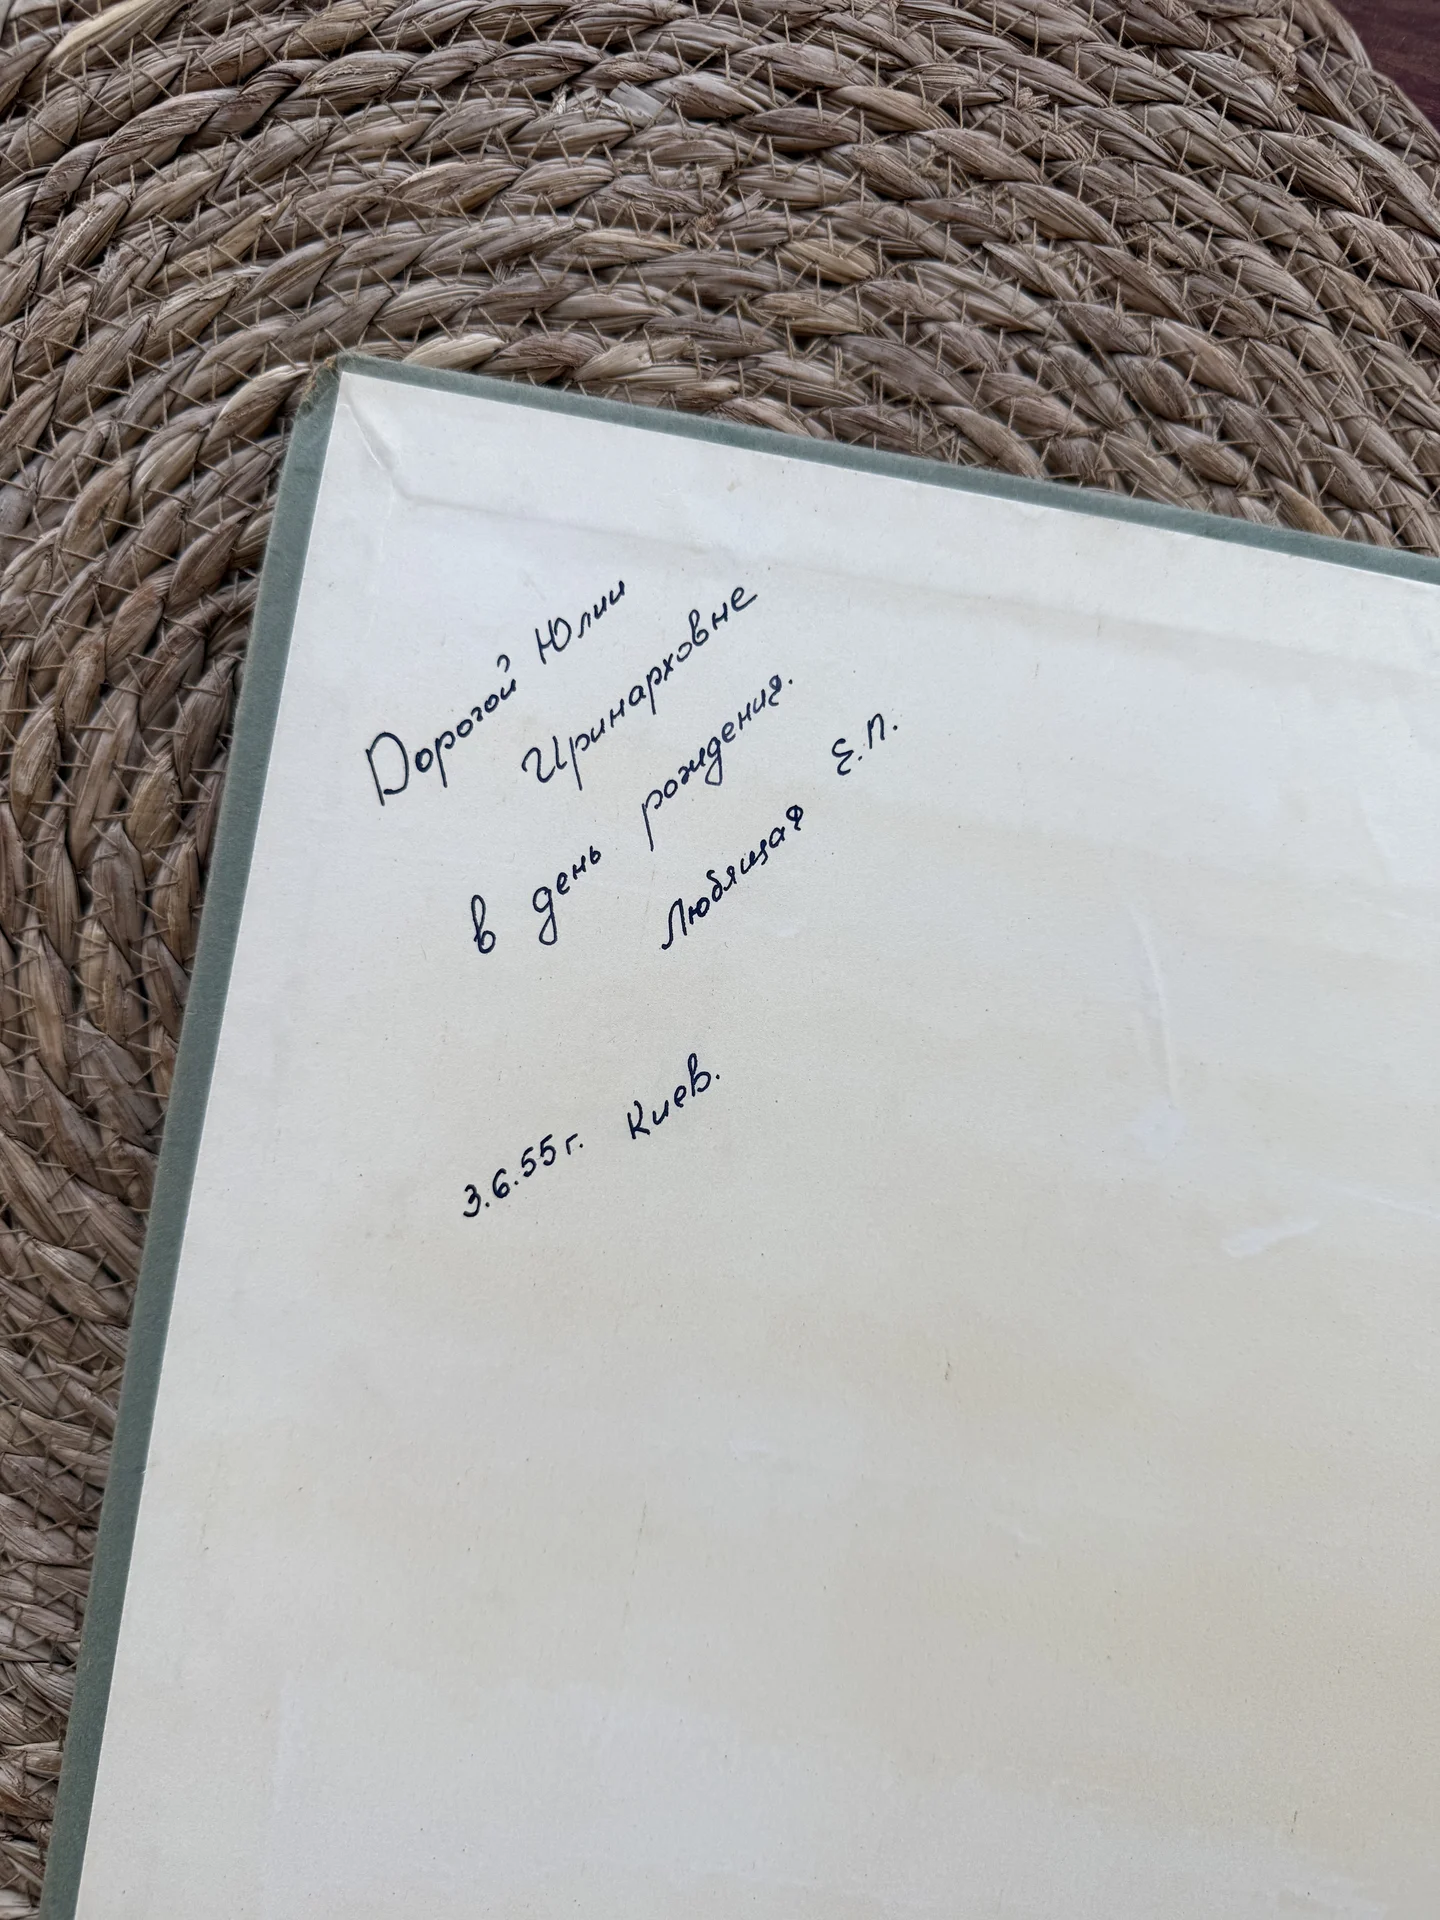 Дорогой Юлии
Иринарховне
в день рождения.
Любящая Е.П.
3.6.55г. Киев.